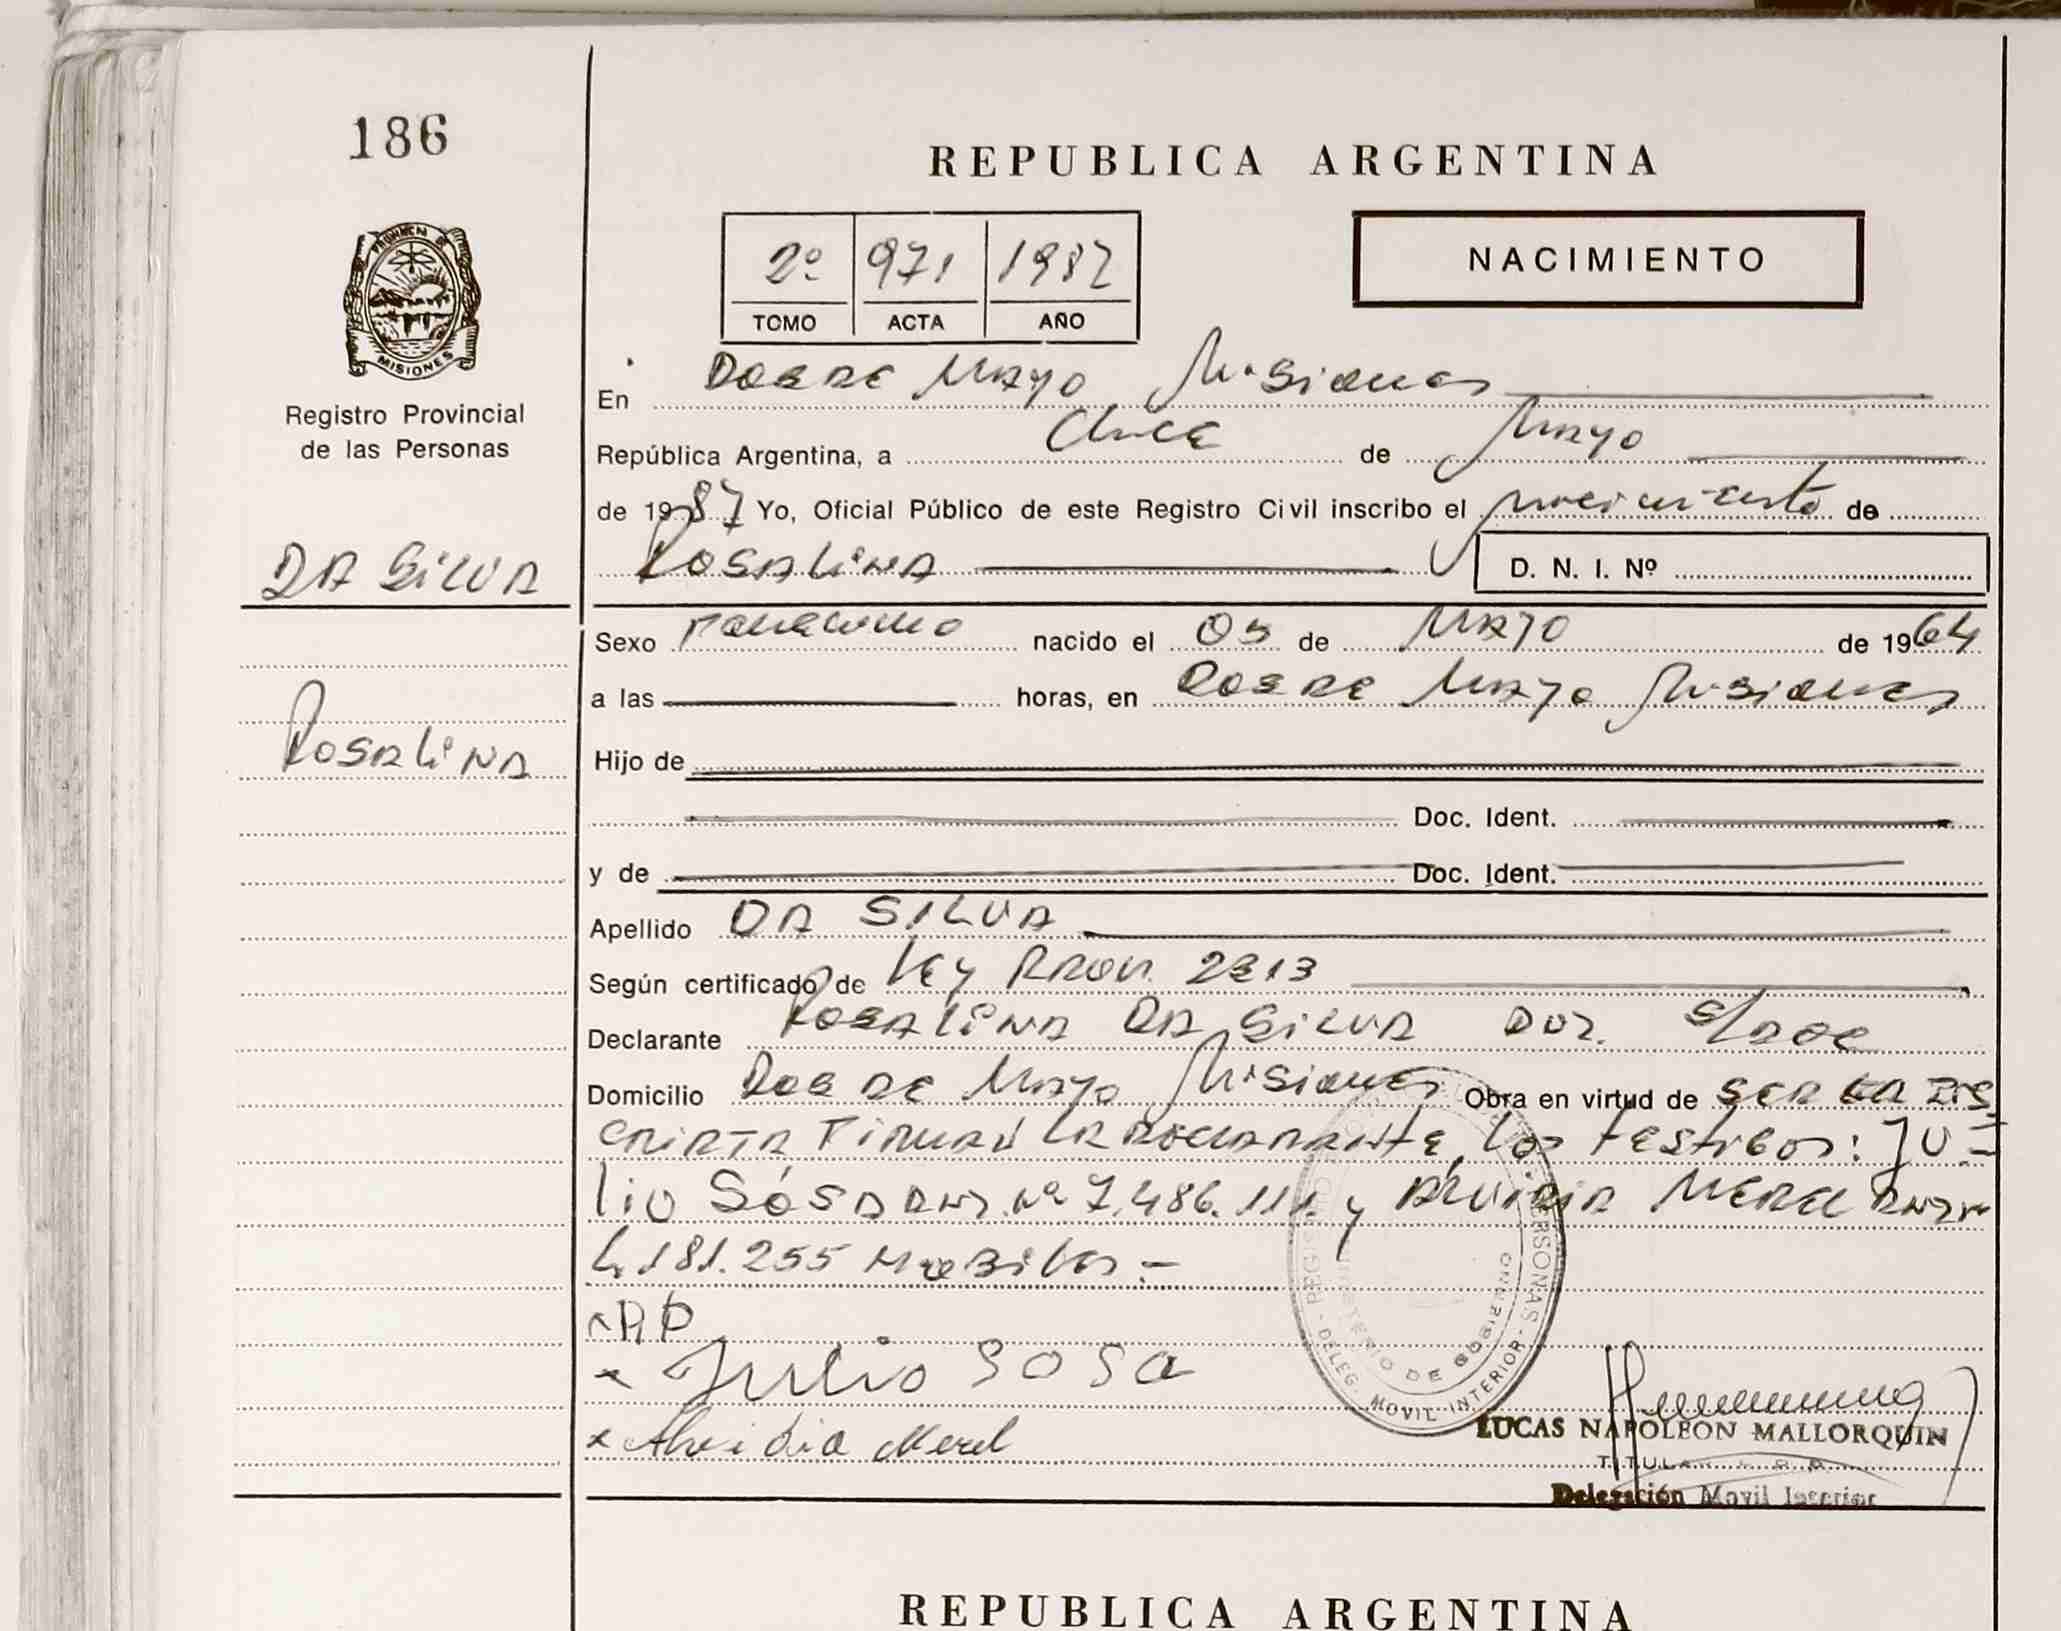 186
REPUBLICA ARGENTINA
PROVINCIA DE
MISIONES
Registro Provincial
de las Personas
2º 971 1987
TOMO ACTA AÑO
NACIMIENTO
En Dos de Mayo Misiones
República Argentina, a once de Mayo
de 1987 Yo, Oficial Público de este Registro Civil inscribo el nacimiento de
Rosalina D. N. I. Nº
DA SILVA
Rosalina
Sexo Femenino nacido el 05 de Mayo de 1964
a las horas, en Dos de Mayo Misiones
Hijo de
Doc. Ident.
y de Doc. Ident.
Apellido DA SILVA
Según certificado de Ley Prov. 2213
Declarante Rosalina DA Silva
Domicilio Dos de Mayo Misiones Obra en virtud de ser la Ins-
cripta Firman la declarante, los testigos: Ju-
lio Sósa DNI. Nº 7.486.111 y Alvidia Merel
4.181.255
x Julio SOSA
x Alvidia Merel
REGISTRO PERSONAS
MINISTERIO DE GOBIERNO
DELEG. MOVIL INTERIOR
LUCAS NAPOLEON MALLORQUIN
TITULAR
Delegación Movil Interior
REPUBLICA ARGENTINA